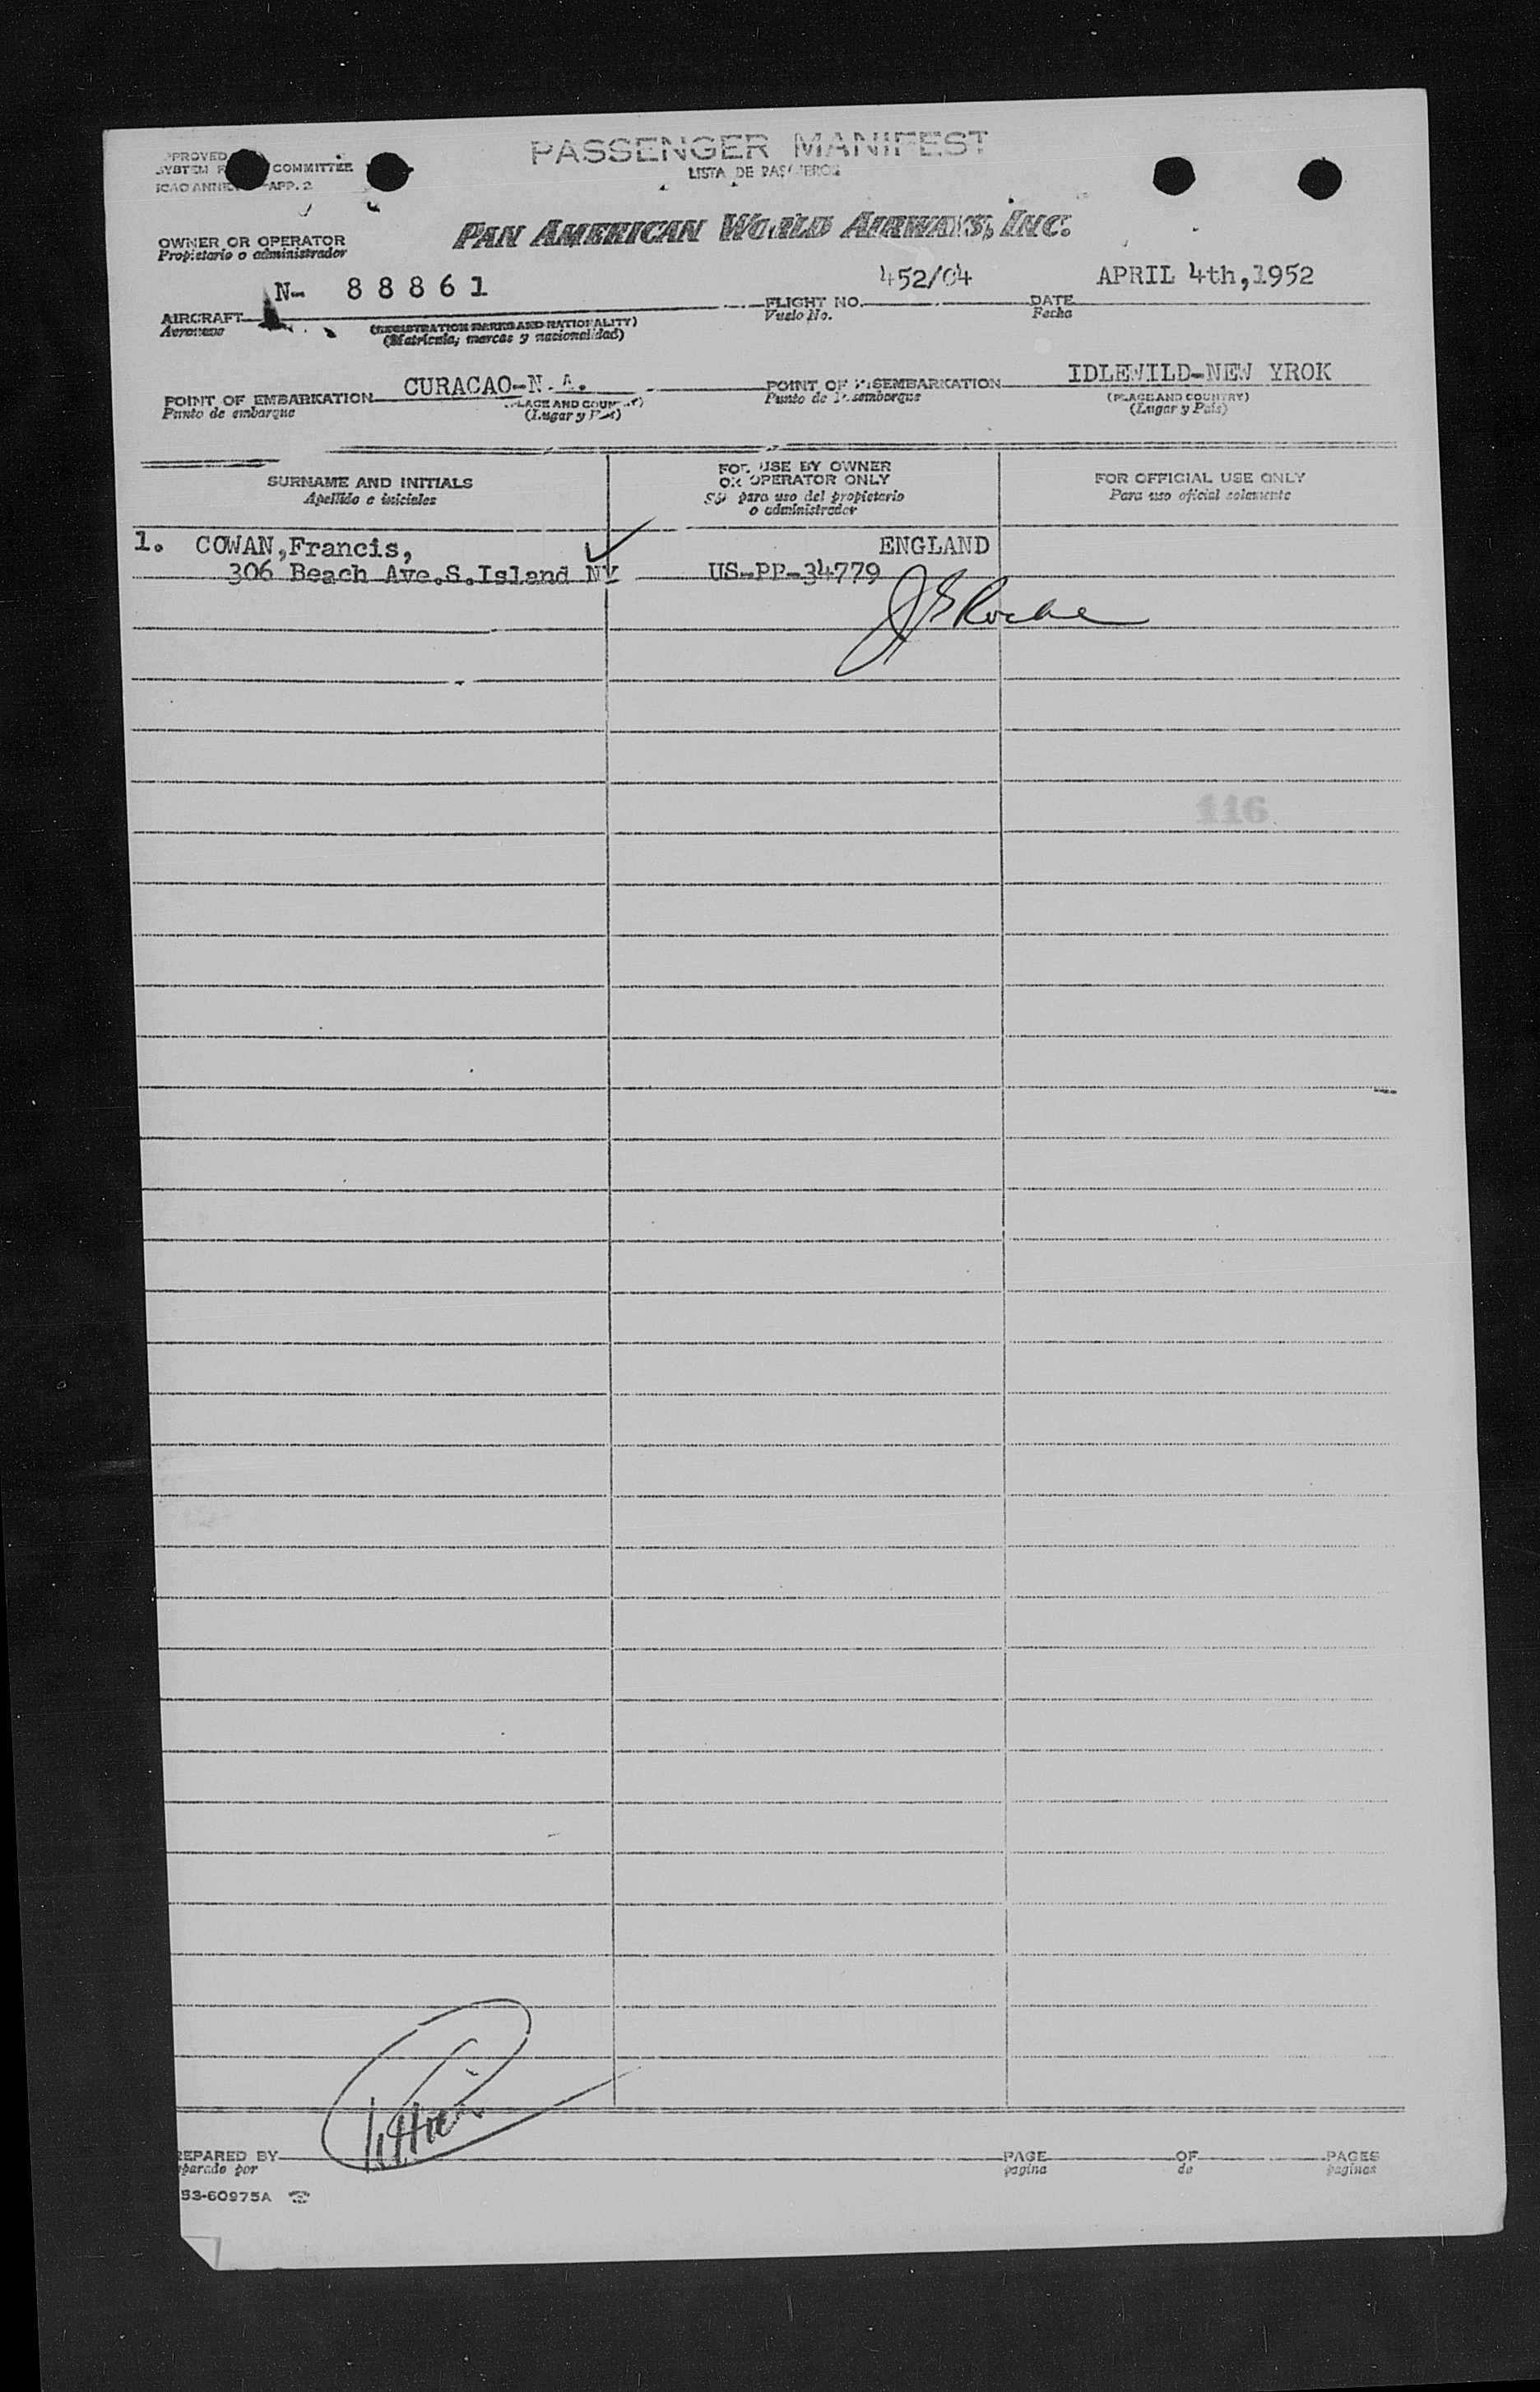 PASSENGER MANIFEST
LISTA DE PASAJEROS
APPROVED COMMITTEE
SYSTEM
ICAO ANNEX APP. 2
PAN AMERICAN WORLD AIRWAYS, INC.
OWNER OR OPERATOR
Propietario o administrador
N- 8 8 8 6 1 452/04 APRIL 4th,1952
AIRCRAFT FLIGHT NO. DATE
Aeronave (REGISTRATION MARKS AND NATIONALITY) Vuelo No. Fecha
(Matrícula, marcas y nacionalidad)
CURACAO-N.A. IDLEWILD-NEW YROK
POINT OF EMBARKATION POINT OF DISEMBARKATION
Punto de embarque (PLACE AND COUNTRY) Punto de Desembarque (PLACE AND COUNTRY)
(Lugar y País) (Lugar y País)
SURNAME AND INITIALS
Apellido e iniciales
FOR USE BY OWNER
OR OPERATOR ONLY
Sólo para uso del propietario
o administrador
FOR OFFICIAL USE ONLY
Para uso oficial solamente
1. COWAN,Francis, ENGLAND
306 Beach Ave.S.Island NY US-PP-34779
JS Roche
116
PREPARED BY PAGE OF PAGES
Preparado por pagina de paginas
53-60975A